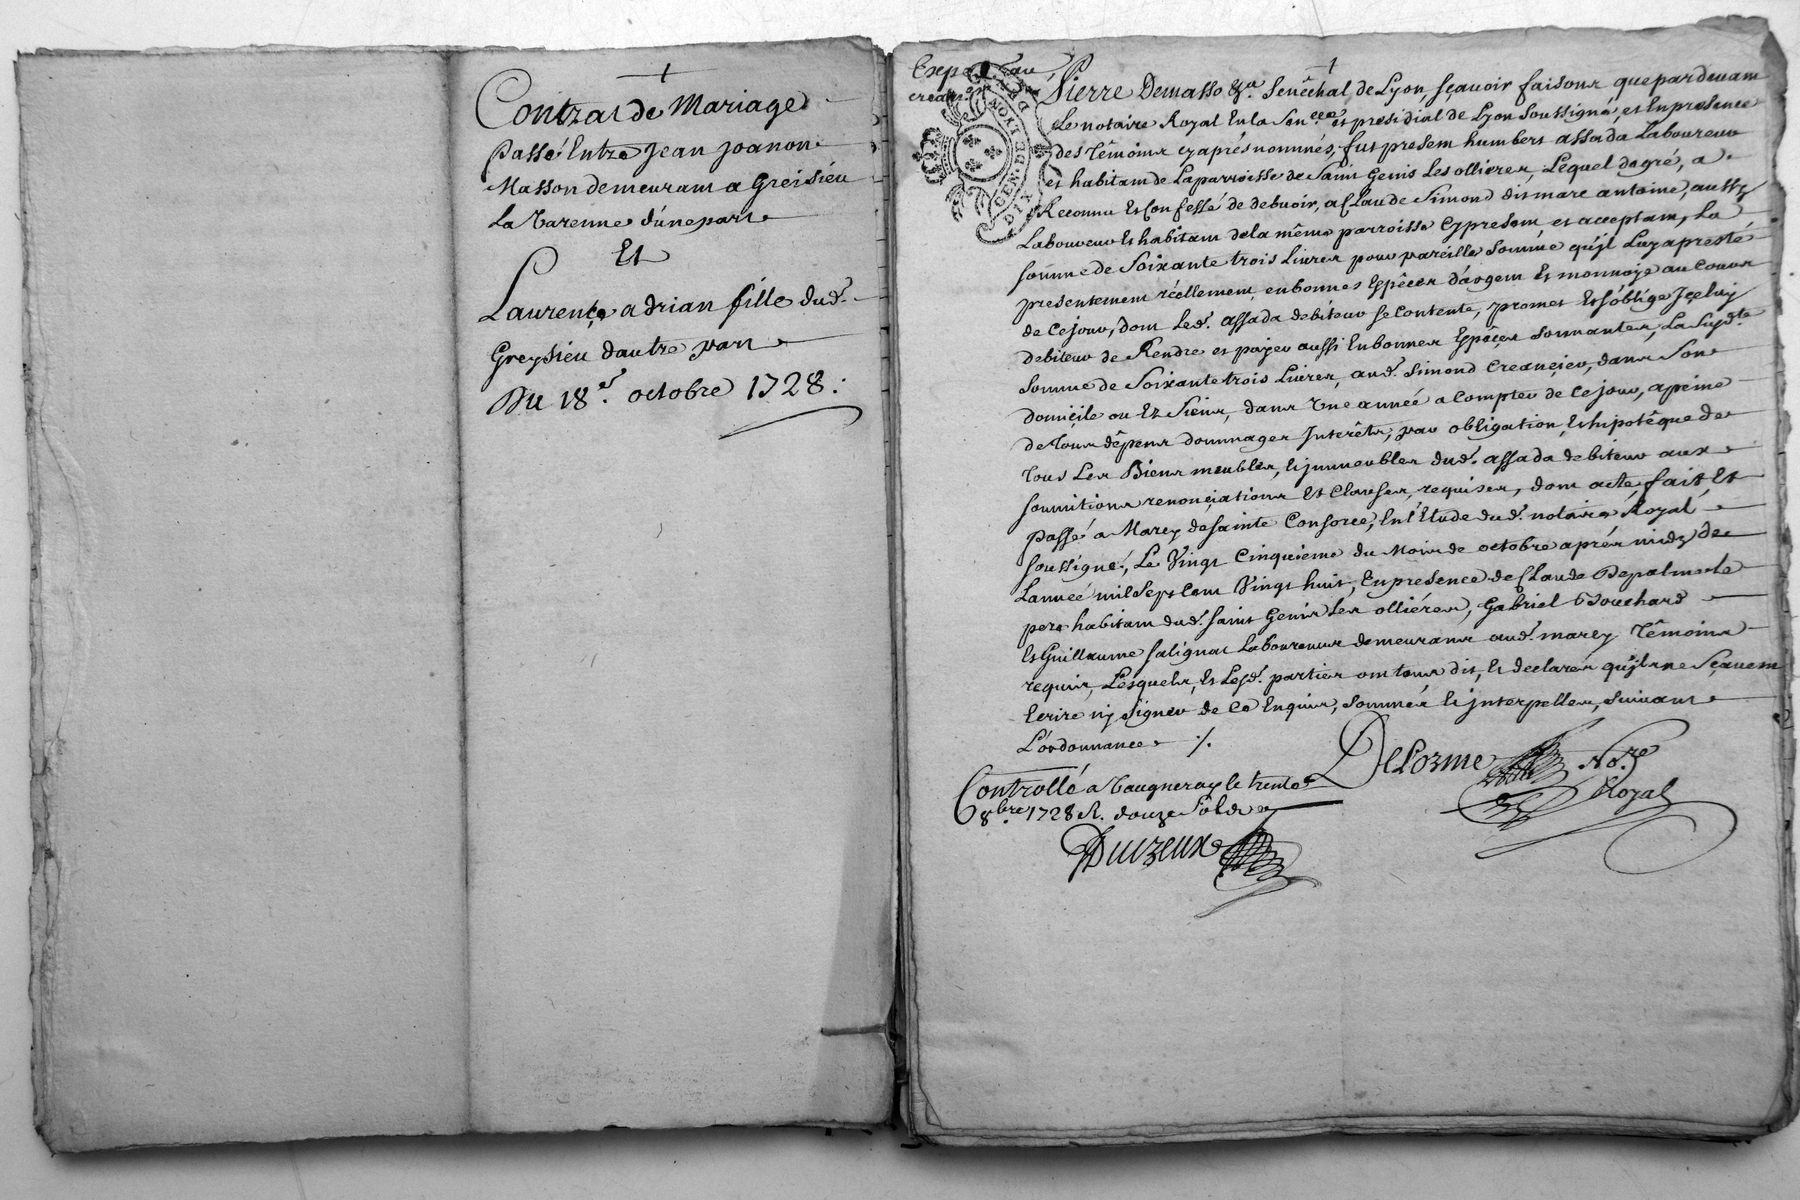 Contrat de Mariage
Passé Entre Jean Joanon
Masson demeurant a Greisieu
La Varenne d'une part
Et
Laurence adrian fille dud.
Greysieu dautre part
Du 18e. octobre 1728.
Pierre Demasso &a. Senêchal de Lyon, sçavoir faisons que pardevant
Le notaire Royal En la Sen.cée et presidial de Lyon Soussigné, et En presence
des Têmoins cy aprés nommés, fut present humbert assada Laboureur
et habitant de La parroisse de Saint Genis Les ollieres, Lequel de gré, a
Reconnu Et Confessé de debvoir, a Claude Simond dit marc antoine, aussy
Laboureur Et habitant de la même parroisse Cy present, et acceptant, La
somme de Soixante trois Livres pour pareille Somme qu'jl Luy a presté
presentement réellement, en bonnes Espêces d'argent Et monnoye au Cours
de ce jour, dont Led. assada debiteur se Contente, promet Et s'oblige Jceluy
debiteur de Rendre et payer aussi En bonnes Espêces Sonnantes, La Susd.te
Somme de Soixante trois Livres, aud. Simond Creancier, dans Son
domicile ou Ez Siens, dans Une année a Compter de Ce jour, a peine
de Tous dêpens dommages Jnterêts, par obligation, Et hipotêque de
Tous Les Biens meubles, & jmmeubles dud. assada debiteur aux
soumitions renonciations Et Clauses, requises, dont acte, fait, Et
passé a Marcy de Sainte Consorce, En l'Etude dud. notaire Royal
soussigné, Le Vingt Cinquieme du Mois de octobre aprés midy de
L'année mil Sept Cent Vingt huit, En presence de Claude Depalme Le
pere habitant dud. Saint Genis Les olliéres, Gabriel Bouchard
Et Guillaume Salignat Laboureurs demeurans aud. marcy Têmoins
requis, Lesquels, Et Lesd. parties ont tous dit, & declarés qu'jls ne Sçavent
Ecrire ny Signer de Ce Enquis, Sommés & jnterpellés, Suivant
L'ordonnance ./.
Delorme No.re
Royal
Controllé a Vaugneray le trente
8.bre 1728 R. douze Sols
GEN. DE LYON